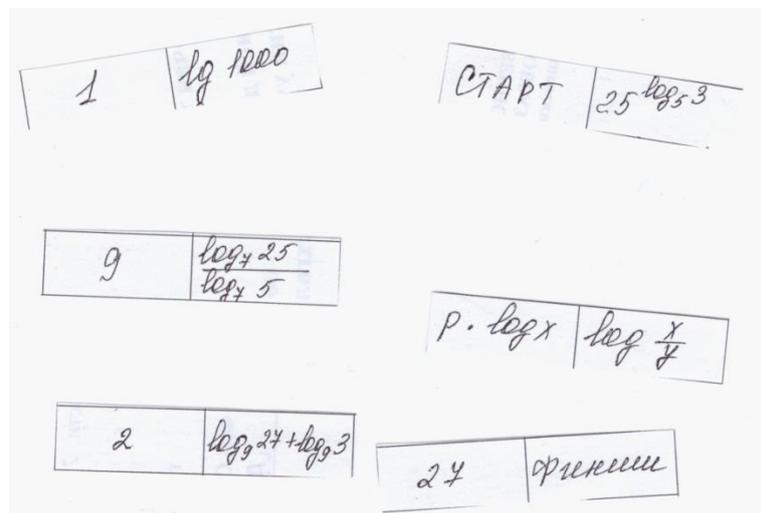 1 lg 1000
СТАРТ 25^{log_5 3}
9 \frac{log_7 25}{log_7 5}
p · log x log \frac{x}{y}
2 log_9 27 + log_9 3
27 финиш